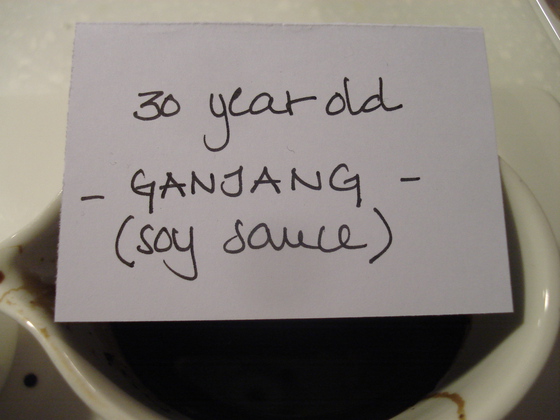 30 year old
- GANJANG -
(soy sauce)